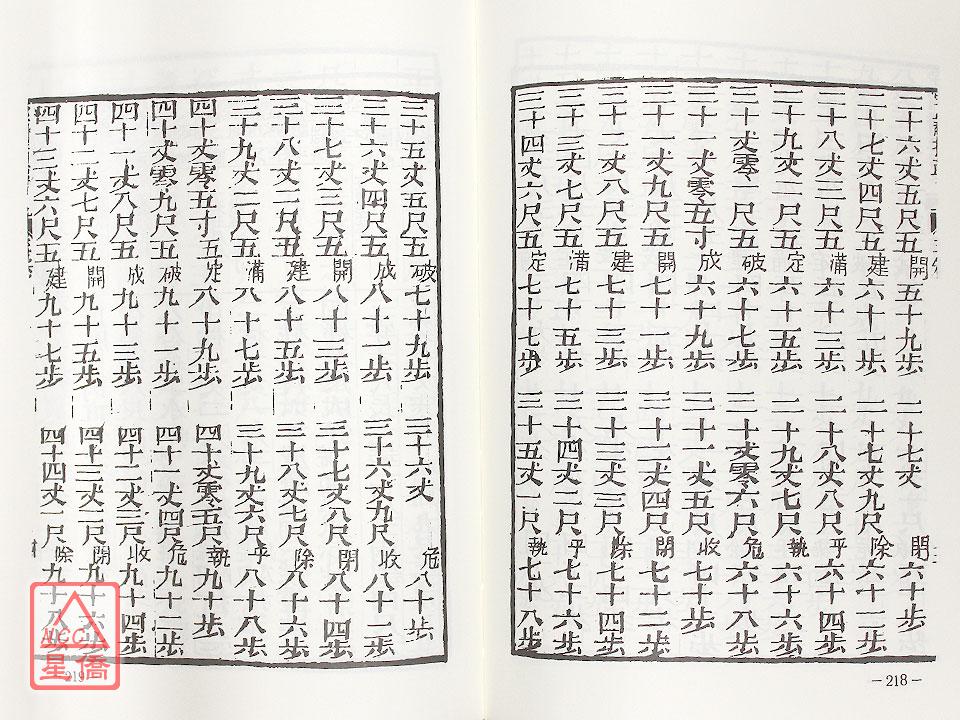 二十六丈五尺五開五十九步 二十七丈閉六十步
二十七丈四尺五建六十一步 二十七丈九尺除六十二步
二十八丈三尺五滿六十三步 二十八丈八尺平六十四步
二十九丈二尺五定六十五步 二十九丈七尺執六十六步
三十丈零一尺五破六十七步 三十丈零六尺危六十八步
三十一丈零五寸成六十九步 三十一丈五尺收七十步
三十一丈九尺五開七十一步 三十二丈四尺閉七十二步
三十二丈八尺五建七十三步 三十三丈三尺除七十四步
三十三丈七尺五滿七十五步 三十四丈二尺平七十六步
三十四丈六尺五定七十七步 三十五丈一尺執七十八步
－218－
三十五丈五尺五破七十九步 三十六丈危八十步
三十六丈四尺五成八十一步 三十六丈九尺收八十二步
三十七丈三尺五開八十三步 三十七丈八尺閉八十四步
三十八丈二尺五建八十五步 三十八丈七尺除八十六步
三十九丈一尺五滿八十七步 三十九丈六尺平八十八步
四十丈零五寸五定八十九步 四十丈零五尺執九十步
四十丈零九尺五破九十一步 四十一丈四尺危九十二步
四十一丈八尺五成九十三步 四十二丈三尺收九十四步
四十二丈七尺五開九十五步 四十三丈二尺閉九十六步
四十三丈六尺五建九十七步 四十四丈一尺除九十八步
219
星僑